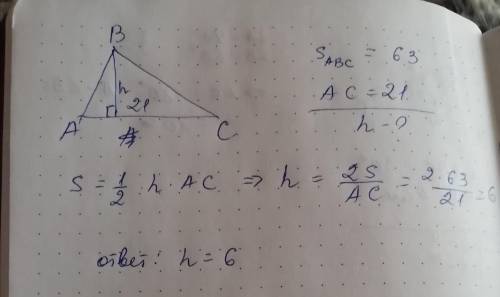 B
h
21
A
C
S_ABC = 63
AC = 21
h - ?
S = 1/2 h AC => h = 2S/AC = 2·63/21 = 6
ответ: h = 6